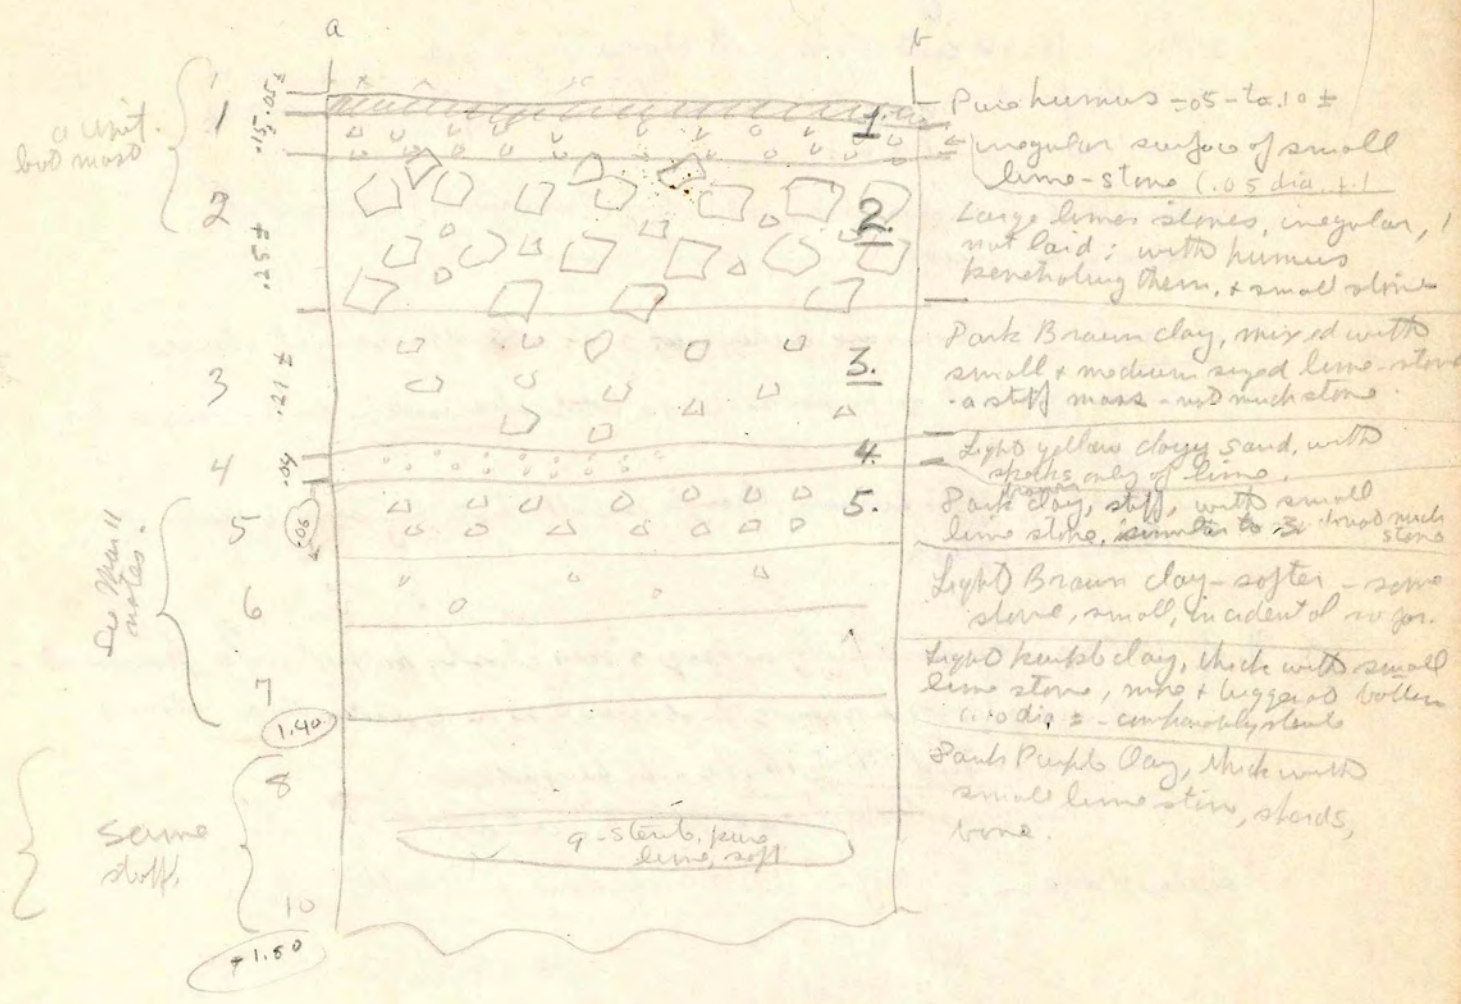 a
b
.05 ±
1
a unit.
.15 ±
2
.25 ±
3
.21 ±
4
.04
See Mar 11
notes.
5
.06
6
7
1.40
8
same
stuff.
10
+1.80
1.
2.
3.
4.
5.
9 - sterile, pure
lime, soft
Pure humus = 05 - to .10 ±
irregular surface of small
lime-stone (.05 dia. ±)
Large limes stones, irregular,
not laid; with humus
them, + small stone
Dark Brown clay, mixed with
small + medium sized lime-stone
- a stiff mass - not much stone.
Light yellow clayey sand, with
specks only of lime.
brown
Dark clay, stiff, with small
lime stone, similar to 3. but not much
stone
Light Brown clay - softer - some
stone, small, incidental so far.
Light purple clay, thick with small
lime stone, more + bigger at bottom
(.10 dia ± - comparably sterile
Dark Purple Clay, thick with
small lime stone, sherds,
bone.